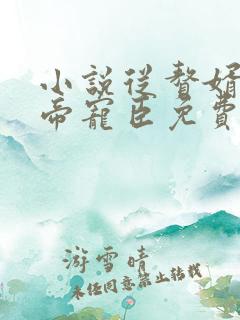 小說從贅婿
帝寵臣免費
游雪晴
未經同意禁止轉載